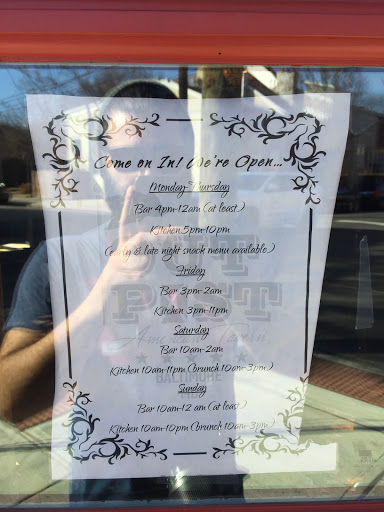 Come on In! We're Open...
Monday-Thursday
Bar 4pm-12am (at least)
Kitchen 5pm-10pm
(early & late night snack menu available)
Friday
Bar 3pm-2am
Kitchen 3pm-11pm
Saturday
Bar 10am-2am
Kitchen 10am-11pm (brunch 10am-3pm)
BALTIMORE
Sunday
Bar 10am-12 am (at least)
Kitchen 10am-10pm (brunch 10am-3pm)